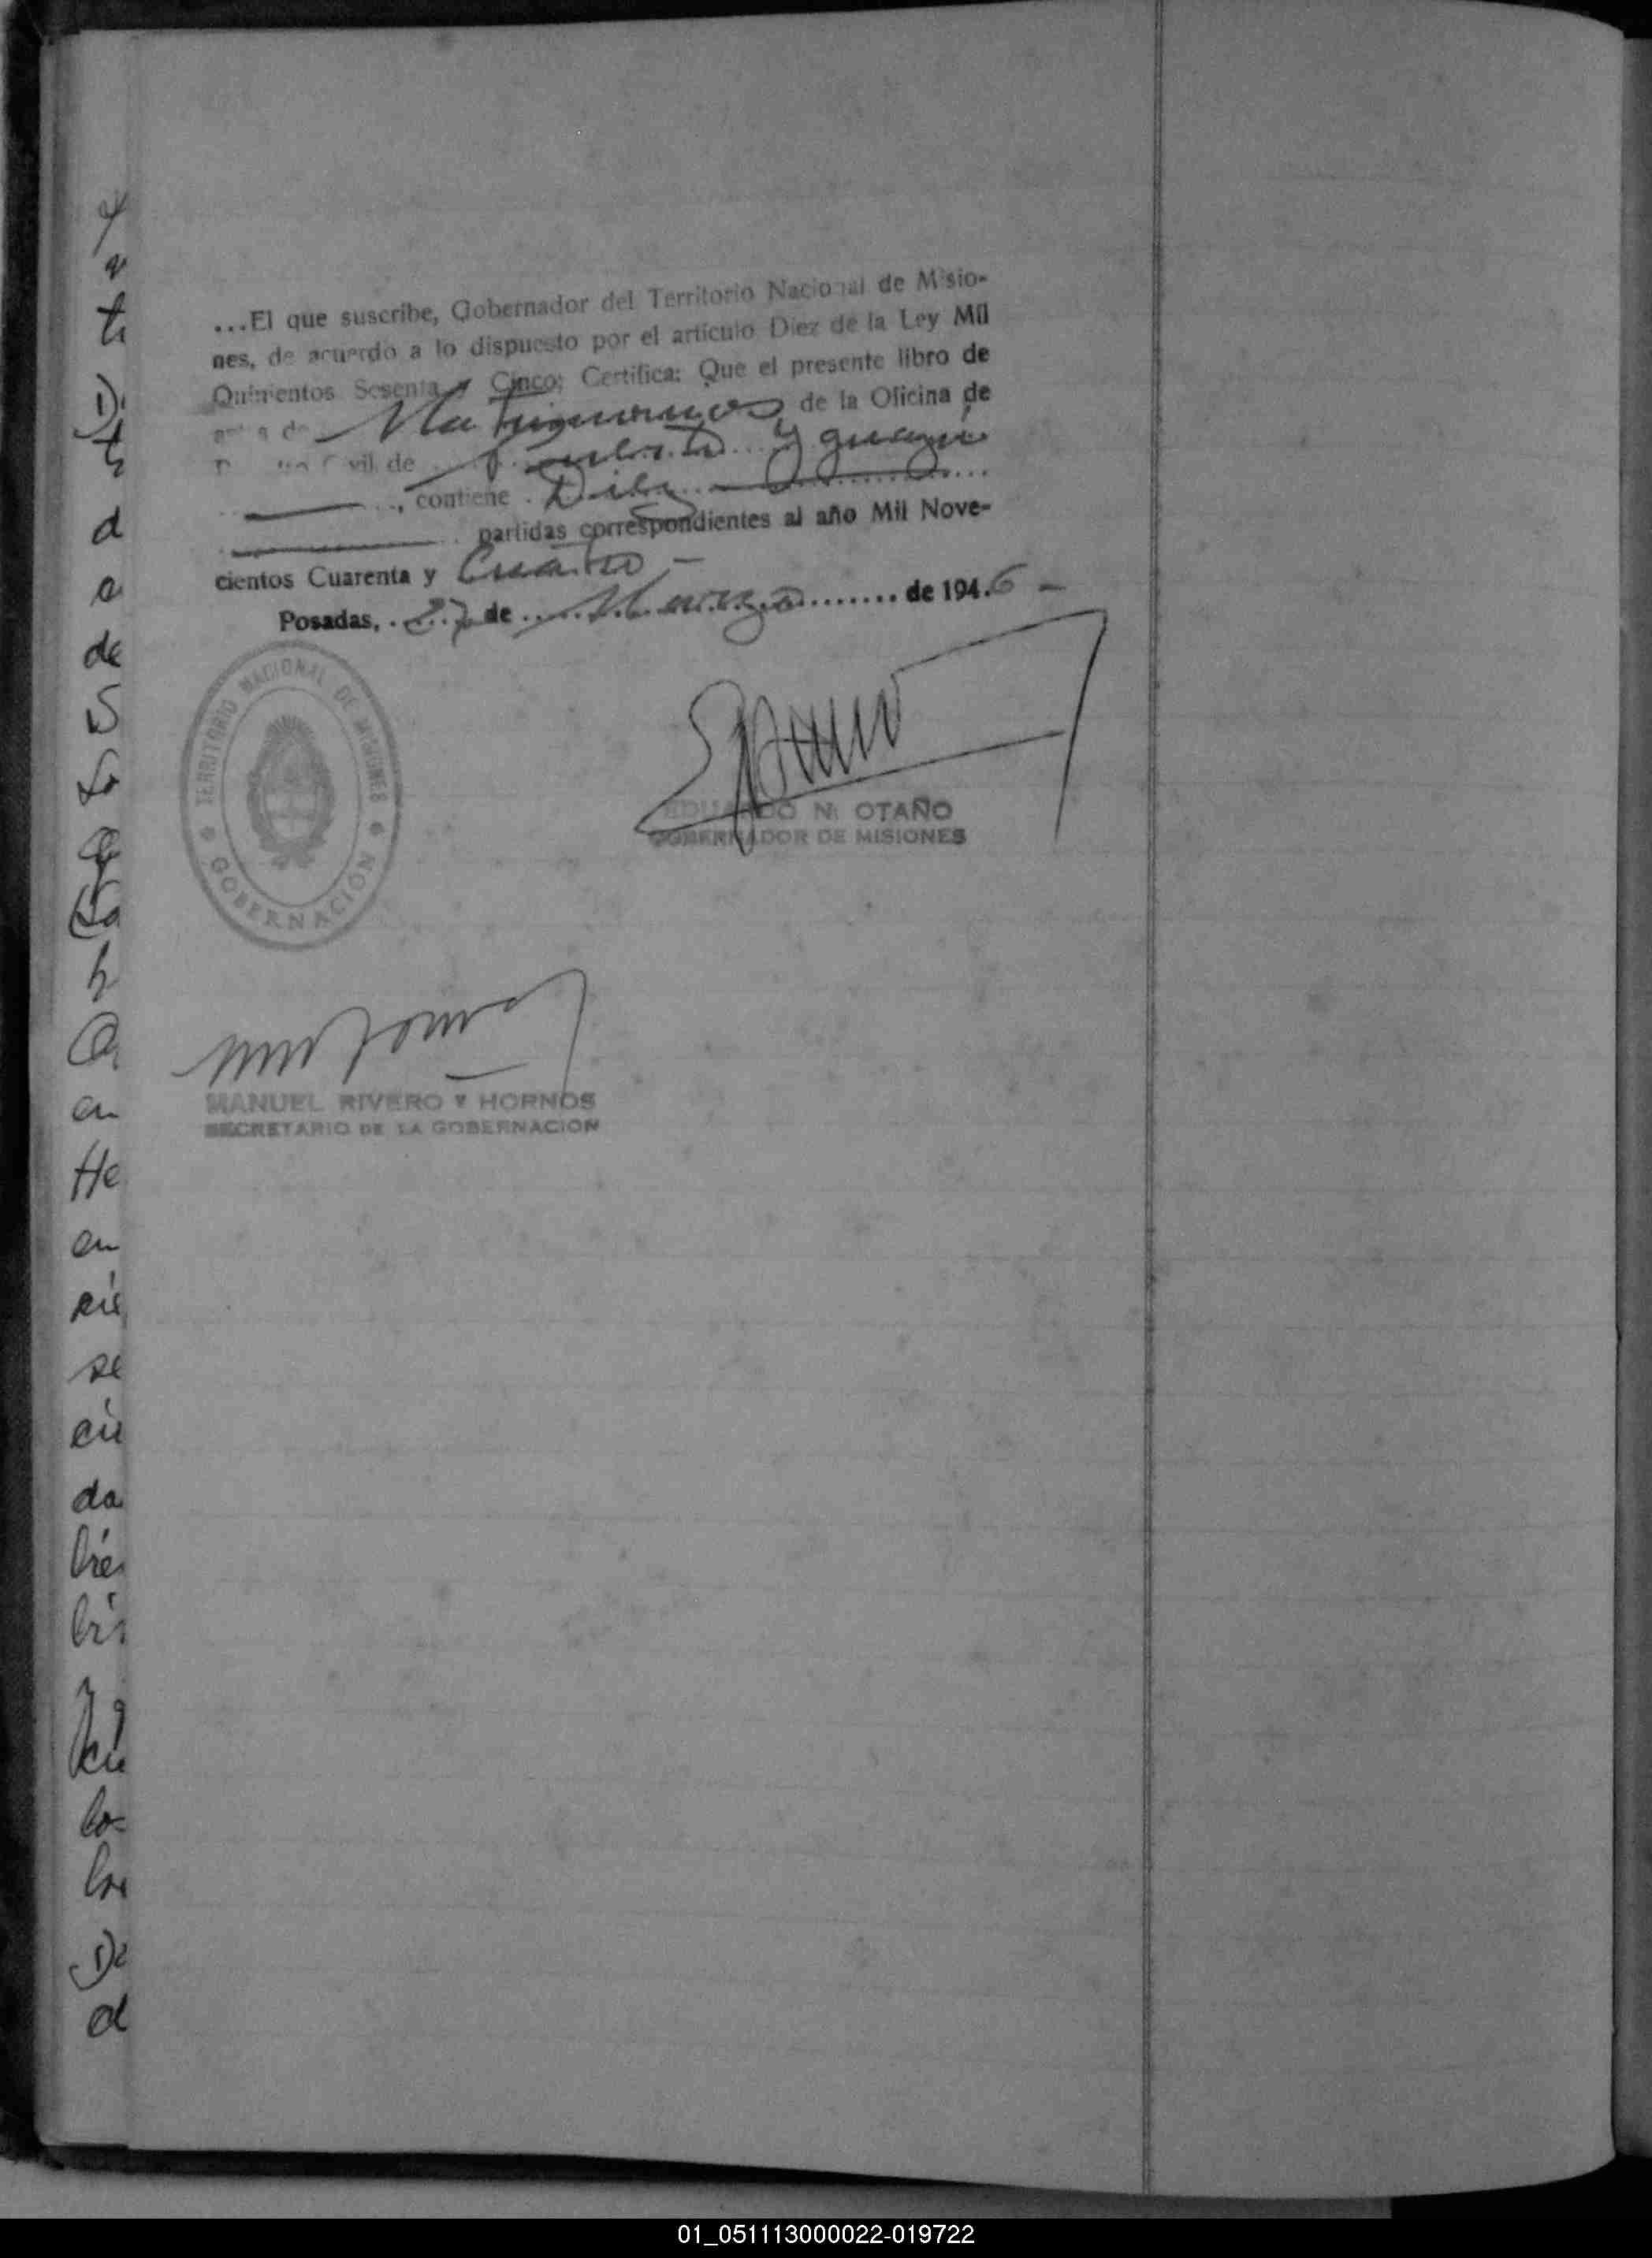 ...El que suscribe, Gobernador del Territorio Nacional de Misio-
nes, de acuerdo a lo dispuesto por el artículo Diez de la Ley Mil
Quinientos Sesenta y Cinco; Certifica: Que el presente libro de
Matrimonios de la Oficina de
Civil de Puerto Yguazú
, contiene Diez
partidas correspondientes al año Mil Nove-
cientos Cuarenta y Cuatro -
Posadas, 27 de Marzo de 1946 -
TERRITORIO NACIONAL DE MISIONES
GOBERNACIÓN
EDUARDO N. OTAÑO
GOBERNADOR DE MISIONES
MANUEL RIVERO Y HORNOS
SECRETARIO DE LA GOBERNACION
d
a
de
S
h
en
He
en
se
da
lo-
De
d
01_051113000022-019722